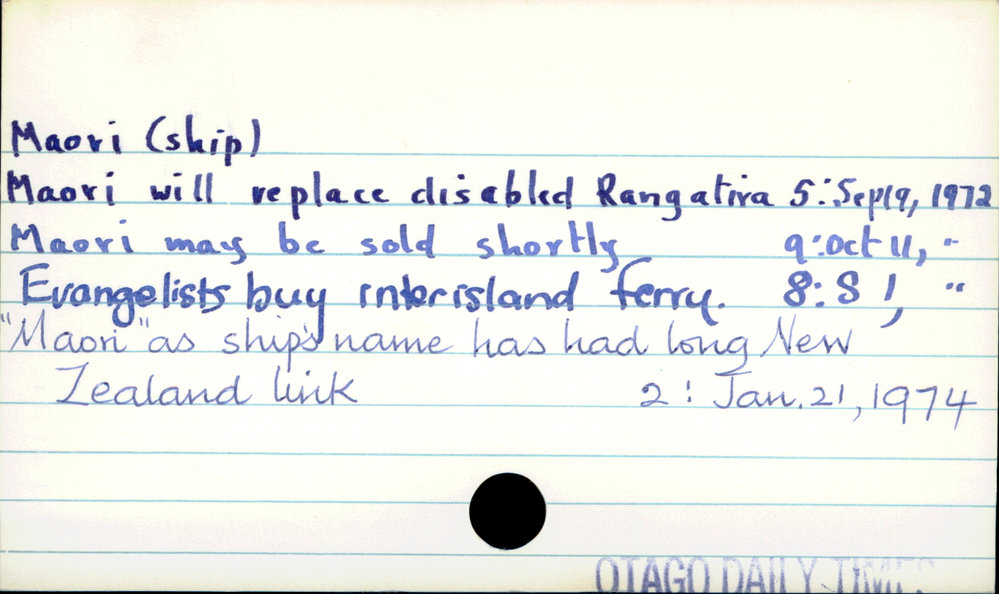 Maori (ship)
Maori will replace disabled Rangatira 5:Sep19, 1972
Maori may be sold shortly 9:Oct 11, "
Evangelists buy interisland ferry. 8:S 1, "
"Maori" as ship's name has had long New
Zealand link 2: Jan. 21, 1974
OTAGO DAILY TIMES